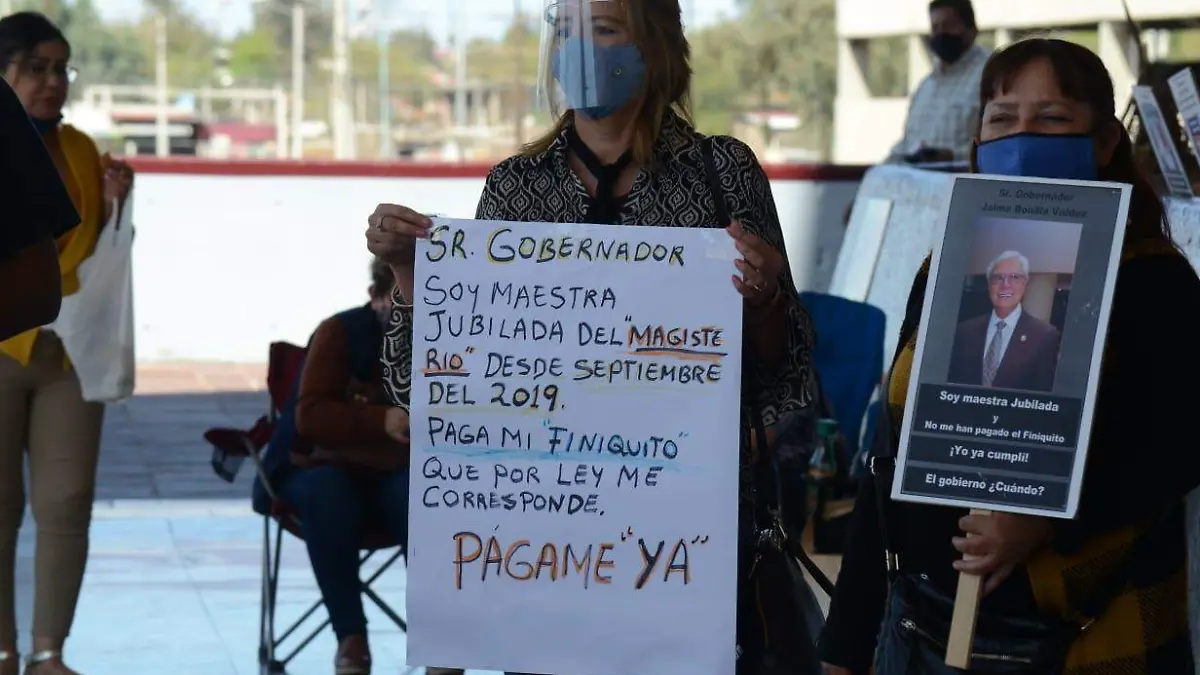 SR. GOBERNADOR
SOY MAESTRA
JUBILADA DEL "MAGISTE
RIO" DESDE SEPTIEMBRE
DEL 2019.
PAGA MI "FINIQUITO"
QUE POR LEY ME
CORRESPONDE.
PÁGAME "YA"
Sr. Gobernador
Jaime Bonilla Valdez
Soy maestra Jubilada
y
No me han pagado el Finiquito
¡Yo ya cumplí!
El gobierno ¿Cuándo?